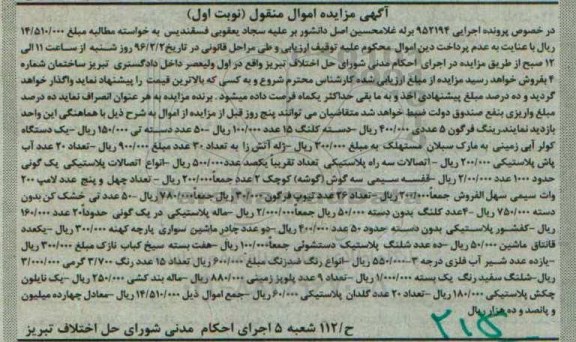 آگهی مزایده اموال منقول (نوبت اول)
در خصوص پرونده اجرایی ۹۵۲۱۹۴ برله غلامحسین اصل دانشور بر علیه سجاد یعقوبی فسقندیس به خواسته مطالبه مبلغ ۱۴/۵۱۰/۰۰۰
ریال با عنایت به عدم پرداخت دین اموال محکوم علیه توقیف ارزیابی و طی مراحل قانونی در تاریخ ۹۶/۲/۲ روز شنبه از ساعت ۱۱ الی
۱۲ صبح از طریق مزایده در اجرای احکام مدنی شورای حل اختلاف تبریز واقع در اول ولیعصر داخل دادگستری تبریز ساختمان شماره
۴ بفروش خواهد رسید مزایده از مبلغ ارزیابی شده کارشناس محترم شروع و به کسی که بالاترین قیمت را پیشنهاد نماید واگذار خواهد
گردید و ده درصد مبلغ پیشنهادی اخذ و به ما بقی حداکثر یکماه فرصت داده میشود. برنده مزایده به هر عنوان انصراف نماید ده درصد
مبلغ واریزی بنفع صندوق دولت ضبط خواهد شد متقاضیان می توانند پنج روز قبل از مزایده از اموال به شرح ذیل با هماهنگی این واحد
بازدید نمایند رینگ فرگون ۵ عددی ۴۰۰/۰۰۰ ریال -دسته کلنگ ۱۵ عدد ۱۰۰/۰۰۰ ریال -۵۰ عدد دسته تی ۱۵۰/۰۰۰ ریال -یک دستگاه
کولر آبی زمینی به مارک سبلان مستهلک به مبلغ ۳۰۰/۰۰۰ ریال -ژله آتش زا به تعداد ۳۰ عدد مبلغ ۹۰۰/۰۰۰ ریال -تعداد ۲۰ عدد آب
پاش پلاستیکی ۲۰۰/۰۰۰ ریال -اتصالات سه راه پلاستیکی تعداد تقریباً یکصد عدد ۵۰۰/۰۰۰ ریال -انواع اتصالات پلاستیکی یک گونی
حدود ۱۰۰۰ عدد ۲/۰۰۰/۰۰۰ ریال -قفسه سیمی سه گوش (گوشه) کوچک ۲ عدد جمعاً ۲۰۰/۰۰۰ ریال -تعداد چهل و پنج عدد لامپ ۲۰۰
وات سیمی سهل الفروش جمعاً ۲۰۰/۰۰۰ ریال -تعداد ۲۶ عدد تیوپ فرگون ۳۰/۰۰۰ ریال جمعاً ۷۸۰/۰۰۰ ریال -۵۰ عدد تی خشک کن بدون
دسته ۷۵۰/۰۰۰ ریال -۴ عدد کلنگ بدون دسته ۵۰/۰۰۰ ریال جمعاً ۲/۰۰۰/۰۰۰ ریال -ماله پلاستیکی در یک گونی حدوداً ۲۰ عدد ۱۶۰/۰۰۰
ریال -کفشور پلاستیکی بدون دسته حدود ۵۰ عدد ۴۰۰/۰۰۰ ریال -دو عدد چادر ماشین سواری پارچه کهنه ۳۰۰/۰۰۰ ریال -یکعدد
قانتاق ماشین ۵۰/۰۰۰ ریال -ده عدد شلنگ پلاستیک دستشوئی جمعاً ۱۰۰/۰۰۰ ریال -هفت بسته سیخ کباب نازک مبلغ ۳۰۰/۰۰۰ ریال
-یازده عدد شیر آب فلزی درجه ۳ -۵۵۰/۰۰۰ ریال -انواع رنگ ضدزنگ مبلغ ۶۰۰/۰۰۰ ریال تعداد ۱۵ عدد رنگ ۳/۷۰۰ گرمی ۳/۰۰۰/۰۰۰
ریال -شلنگ سفید رنگ یک بسته ۱/۰۰۰/۰۰۰ ریال -تعداد ۹ عدد پلوپز زمینی ۸۸۰/۰۰۰ ریال -ماله بند کشی ۲۵۰/۰۰۰ ریال -یک نایلون
چکش پلاستیکی ۱۸۰/۰۰۰ ریال -تعداد ۲۰ عدد گلدان پلاستیکی ۶۰/۰۰۰ ریال -جمع اموال ذیل ۱۴/۵۱۰/۰۰۰ ریال -معادل چهارده میلیون
و پانصد و ده هزار ریال
ح/۱۱۲ شعبه ۵ اجرای احکام مدنی شورای حل اختلاف تبریز